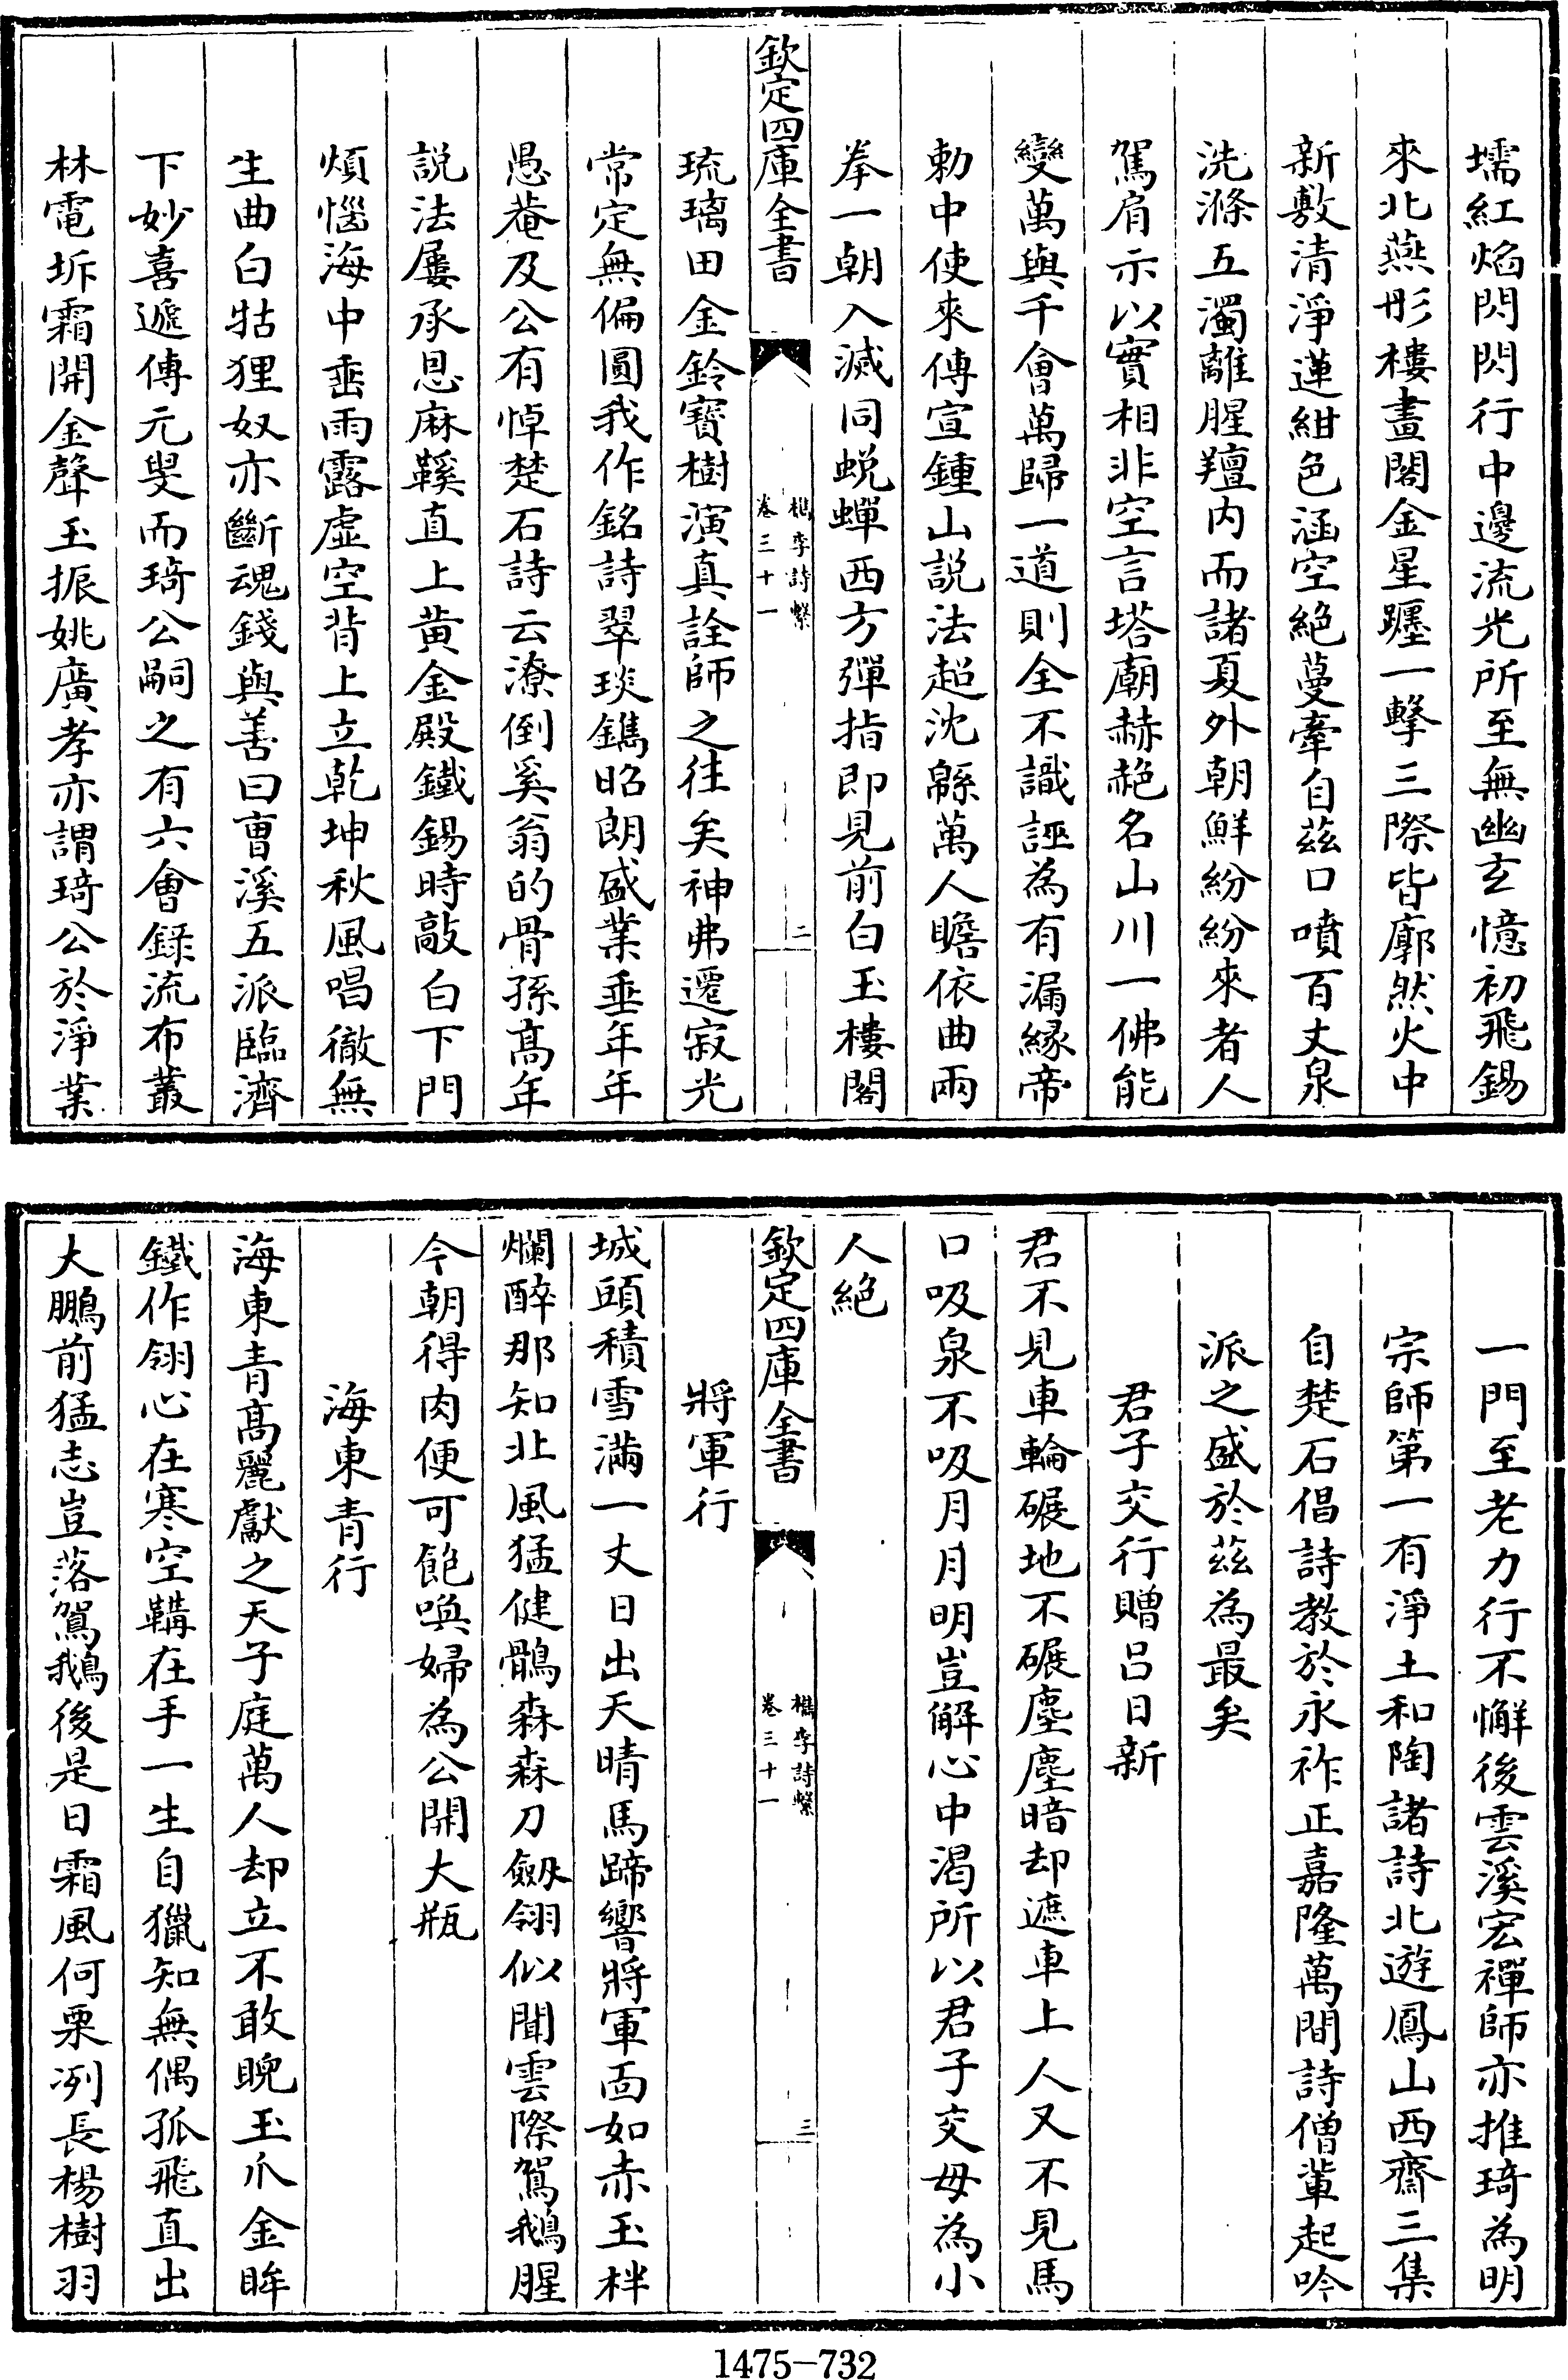 壖紅焰閃閃行中邊流光所至無幽玄憶初飛錫
來北燕彤樓畫閣金星躔一擊三際皆廓然火中
新敷清淨蓮紺色涵空絕蔓牽自茲口噴百丈泉
洗滌五濁離腥羶内而諸夏外朝鮮紛紛來者人
駕肩示以實相非空言塔廟赫赩名山川一佛能
變萬與千會萬歸一道則全不識誣為有漏緣帝
勅中使來傳宣鍾山説法超沈緜萬人瞻依曲兩
拳一朝入滅同蜕蟬西方彈指即見前白玉樓閣
欽定四庫全書
檇李詩繫
卷三十一
二
琉璃田金鈴寶樹演真詮師之往矣神弗遷寂光
常定無偏圓我作銘詩翠琰鐫昭朗盛業垂年年
愚菴及公有悼楚石詩云潦倒奚翁的骨孫髙年
説法屢承恩麻鞵直上黄金殿鐵錫時敲白下門
煩惱海中埀雨露虛空背上立乾坤秋風唱徹無
生曲白牯狸奴亦斷魂錢與善曰曺溪五派臨濟
下妙喜遞傳元叟而琦公嗣之有六會録流布叢
林電坼霜開金聲玉振姚廣孝亦謂琦公於淨業
一門至老力行不懈後雲溪宏禪師亦推琦為明
宗師第一有淨土和陶諸詩北遊鳳山西齋三集
自楚石倡詩教於永祚正嘉隆萬間詩僧輩起吟
派之盛於茲為最矣
君子交行贈吕日新
君不見車輪碾地不碾塵塵暗却遮車上人又不見馬
口吸泉不吸月月明豈解心中渴所以君子交毋為小
人絶
欽定四庫全書
檇李詩繫
卷三十一
三
將軍行
城頭積雪滿一丈日出天晴馬蹄響將軍面如赤玉柈
爛醉那知北風猛健鶻森森刀劔翎似聞雲際駕鵝腥
今朝得肉便可飽喚婦為公開大瓶
海東青行
海東青髙麗獻之天子庭萬人却立不敢睨玉爪金眸
鐵作翎心在寒空鞲在手一生自獵知無偶孤飛直出
大鵬前猛志豈落駕鵝後是日霜風何栗冽長楊樹羽
1475-732